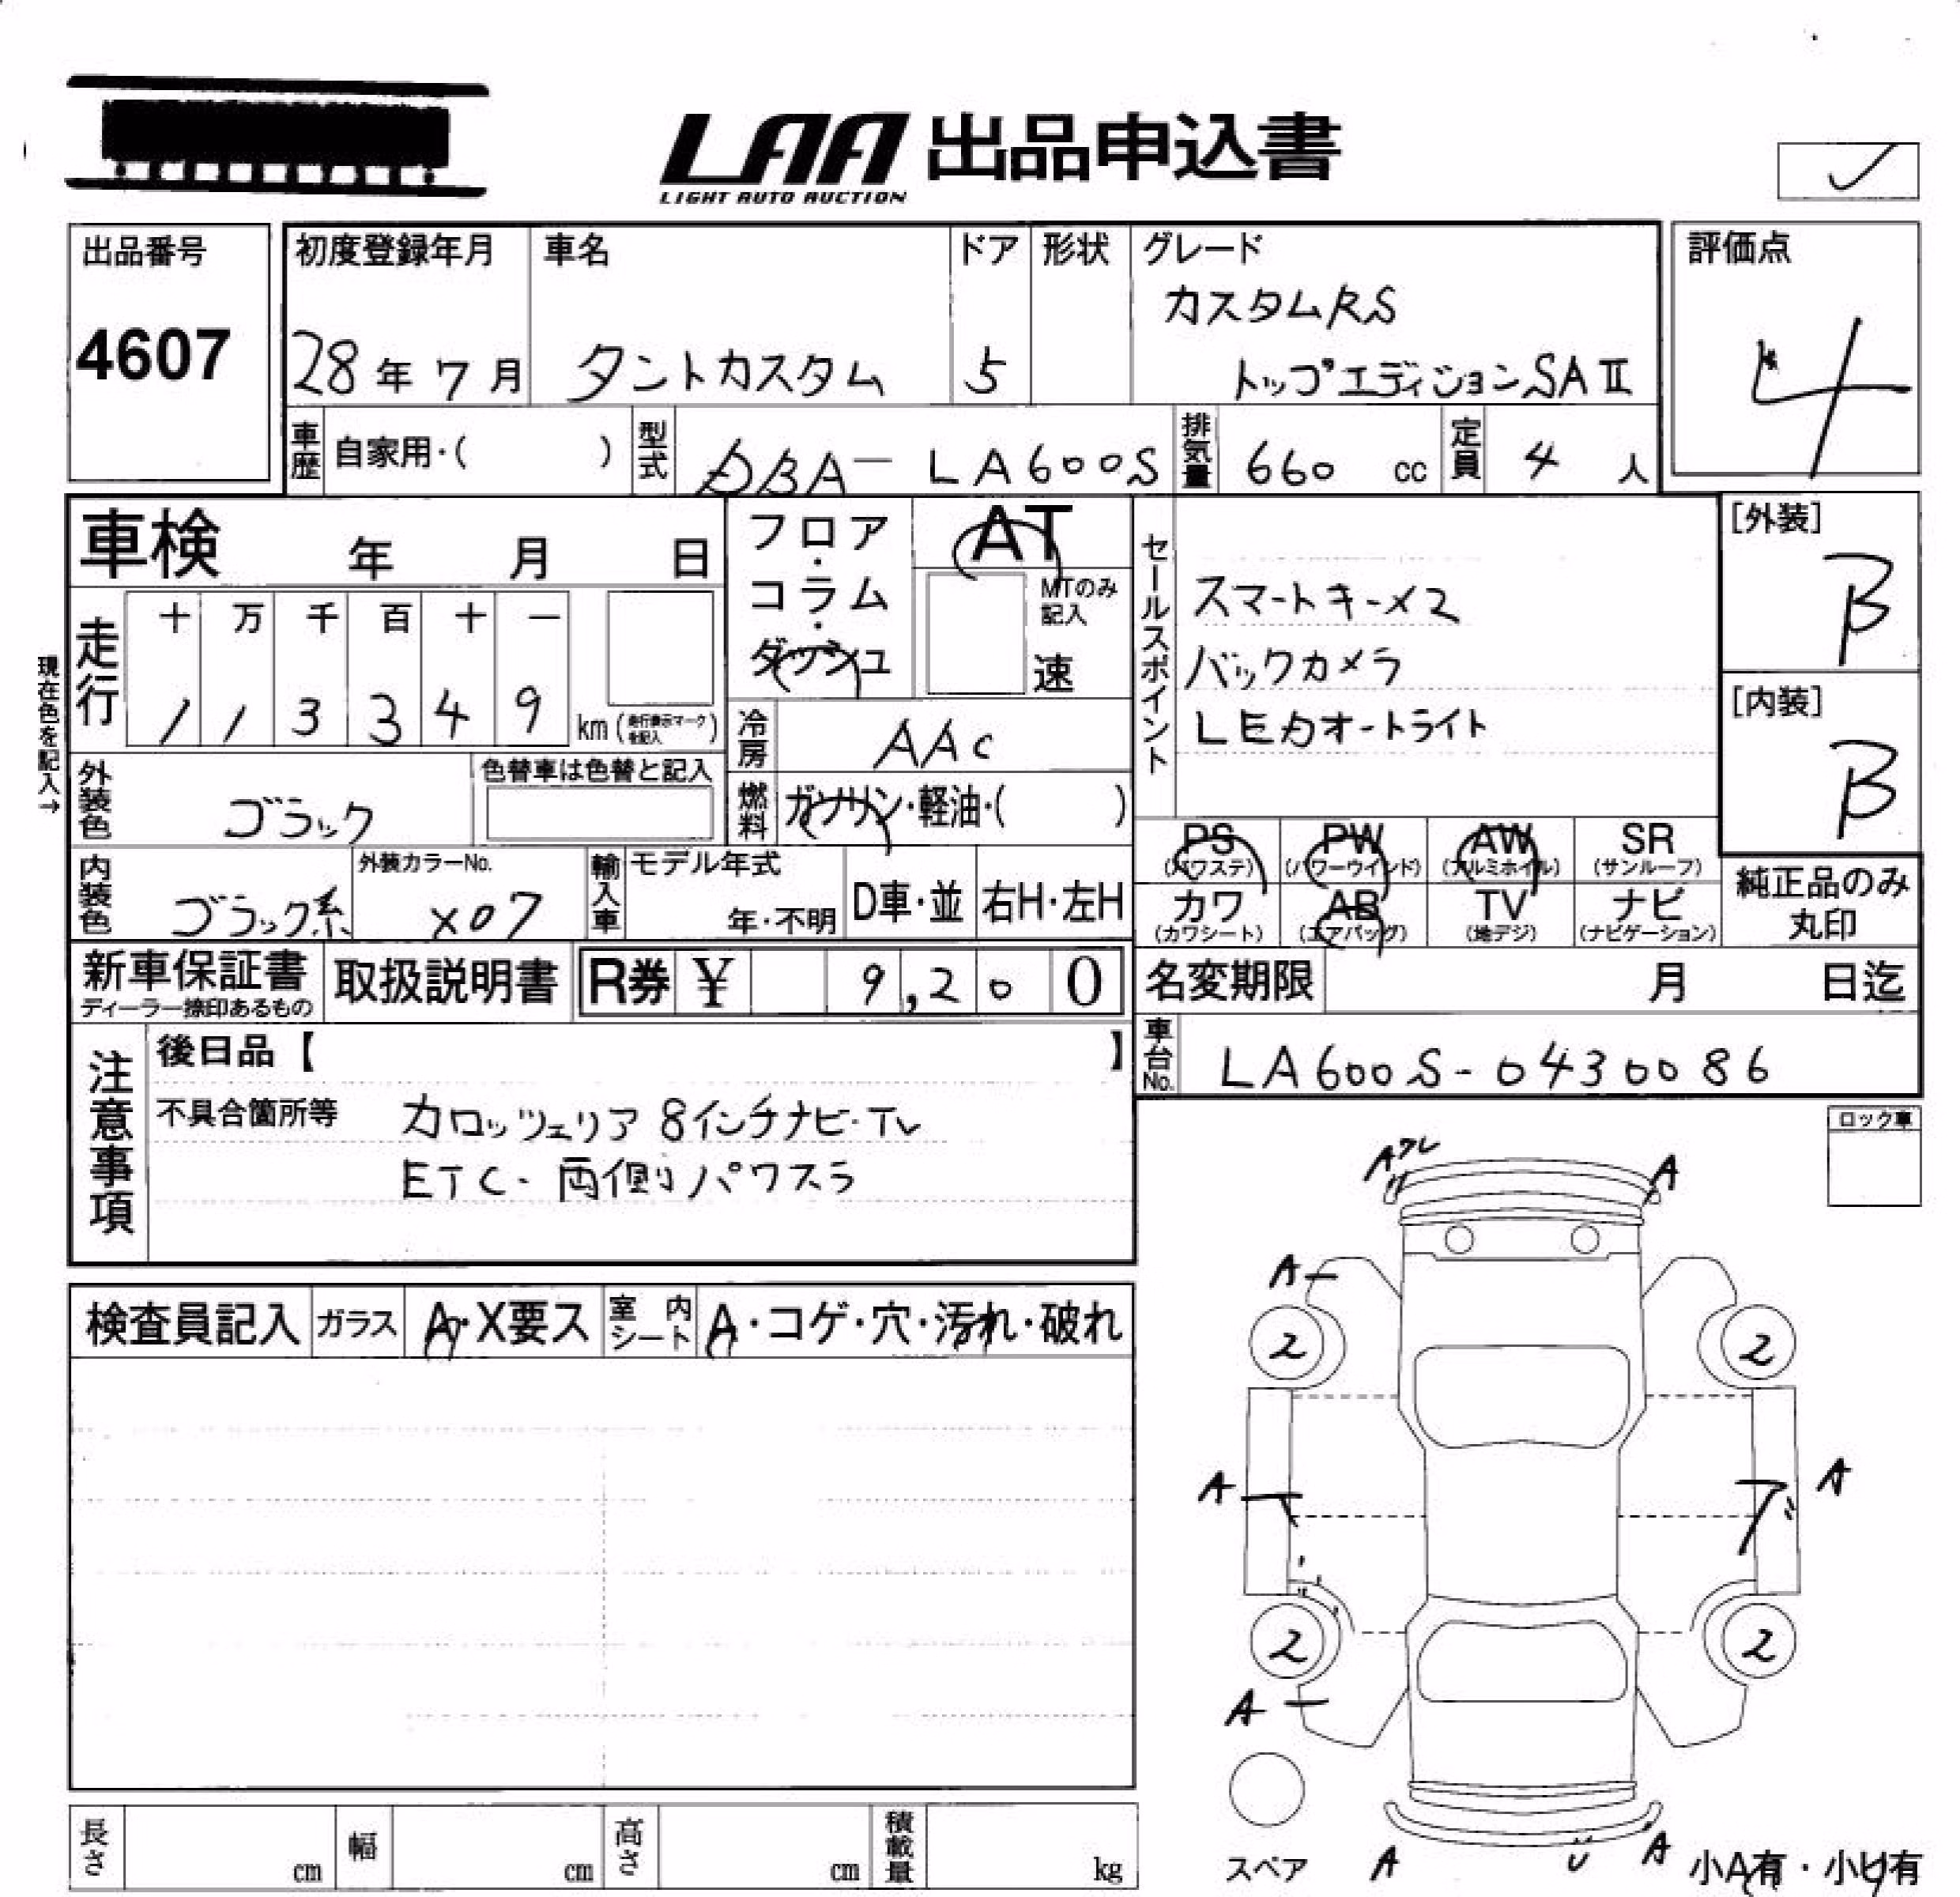 LAA 出品申込書
LIGHT AUTO AUCTION
出品番号
4607
初度登録年月
28年7月
車名
タントカスタム
ドア
5
形状
グレード
カスタムRS
トップエディションSAⅡ
評価点
4
車歴 自家用・( )
型式 DBA-LA600S
排気量 660 cc
定員 4 人
車検 年 月 日
フロア・コラム・ダッシュ
AT
MTのみ記入
速
現在色を記入→
走行
十 万 千 百 十 一
1 1 3 3 4 9 km (走行表示マークを記入)
冷房 AAC
燃料 ガソリン・軽油・( )
外装色 ブラック
色替車は色替と記入
内装色 ブラック系
外装カラーNo. X07
輸入車 モデル年式 年・不明
D車・並
右H・左H
セールスポイント
スマートキーX2
バックカメラ
LEDオートライト
[外装]
B
[内装]
B
PS (パワステ)
PW (パワーウインド)
AW (アルミホイル)
SR (サンルーフ)
カワ (カワシート)
AB (エアバッグ)
TV (地デジ)
ナビ (ナビゲーション)
純正品のみ丸印
新車保証書
ディーラー捺印あるもの
取扱説明書
R券 ¥ 9,200
名変期限 月 日迄
車台No. LA600S-0430086
注意事項
後日品【 】
不具合箇所等 カロッツェリア 8インチナビ・TV
ETC・両側パワスラ
ロック車
検査員記入
ガラス A・X要ス
室内シート A・コゲ・穴・汚れ・破れ
Aワレ
A
A
2
2
A
A
2
2
A
スペア
A
U
A
小A有・小U有
長さ cm
幅 cm
高さ cm
積載量 kg